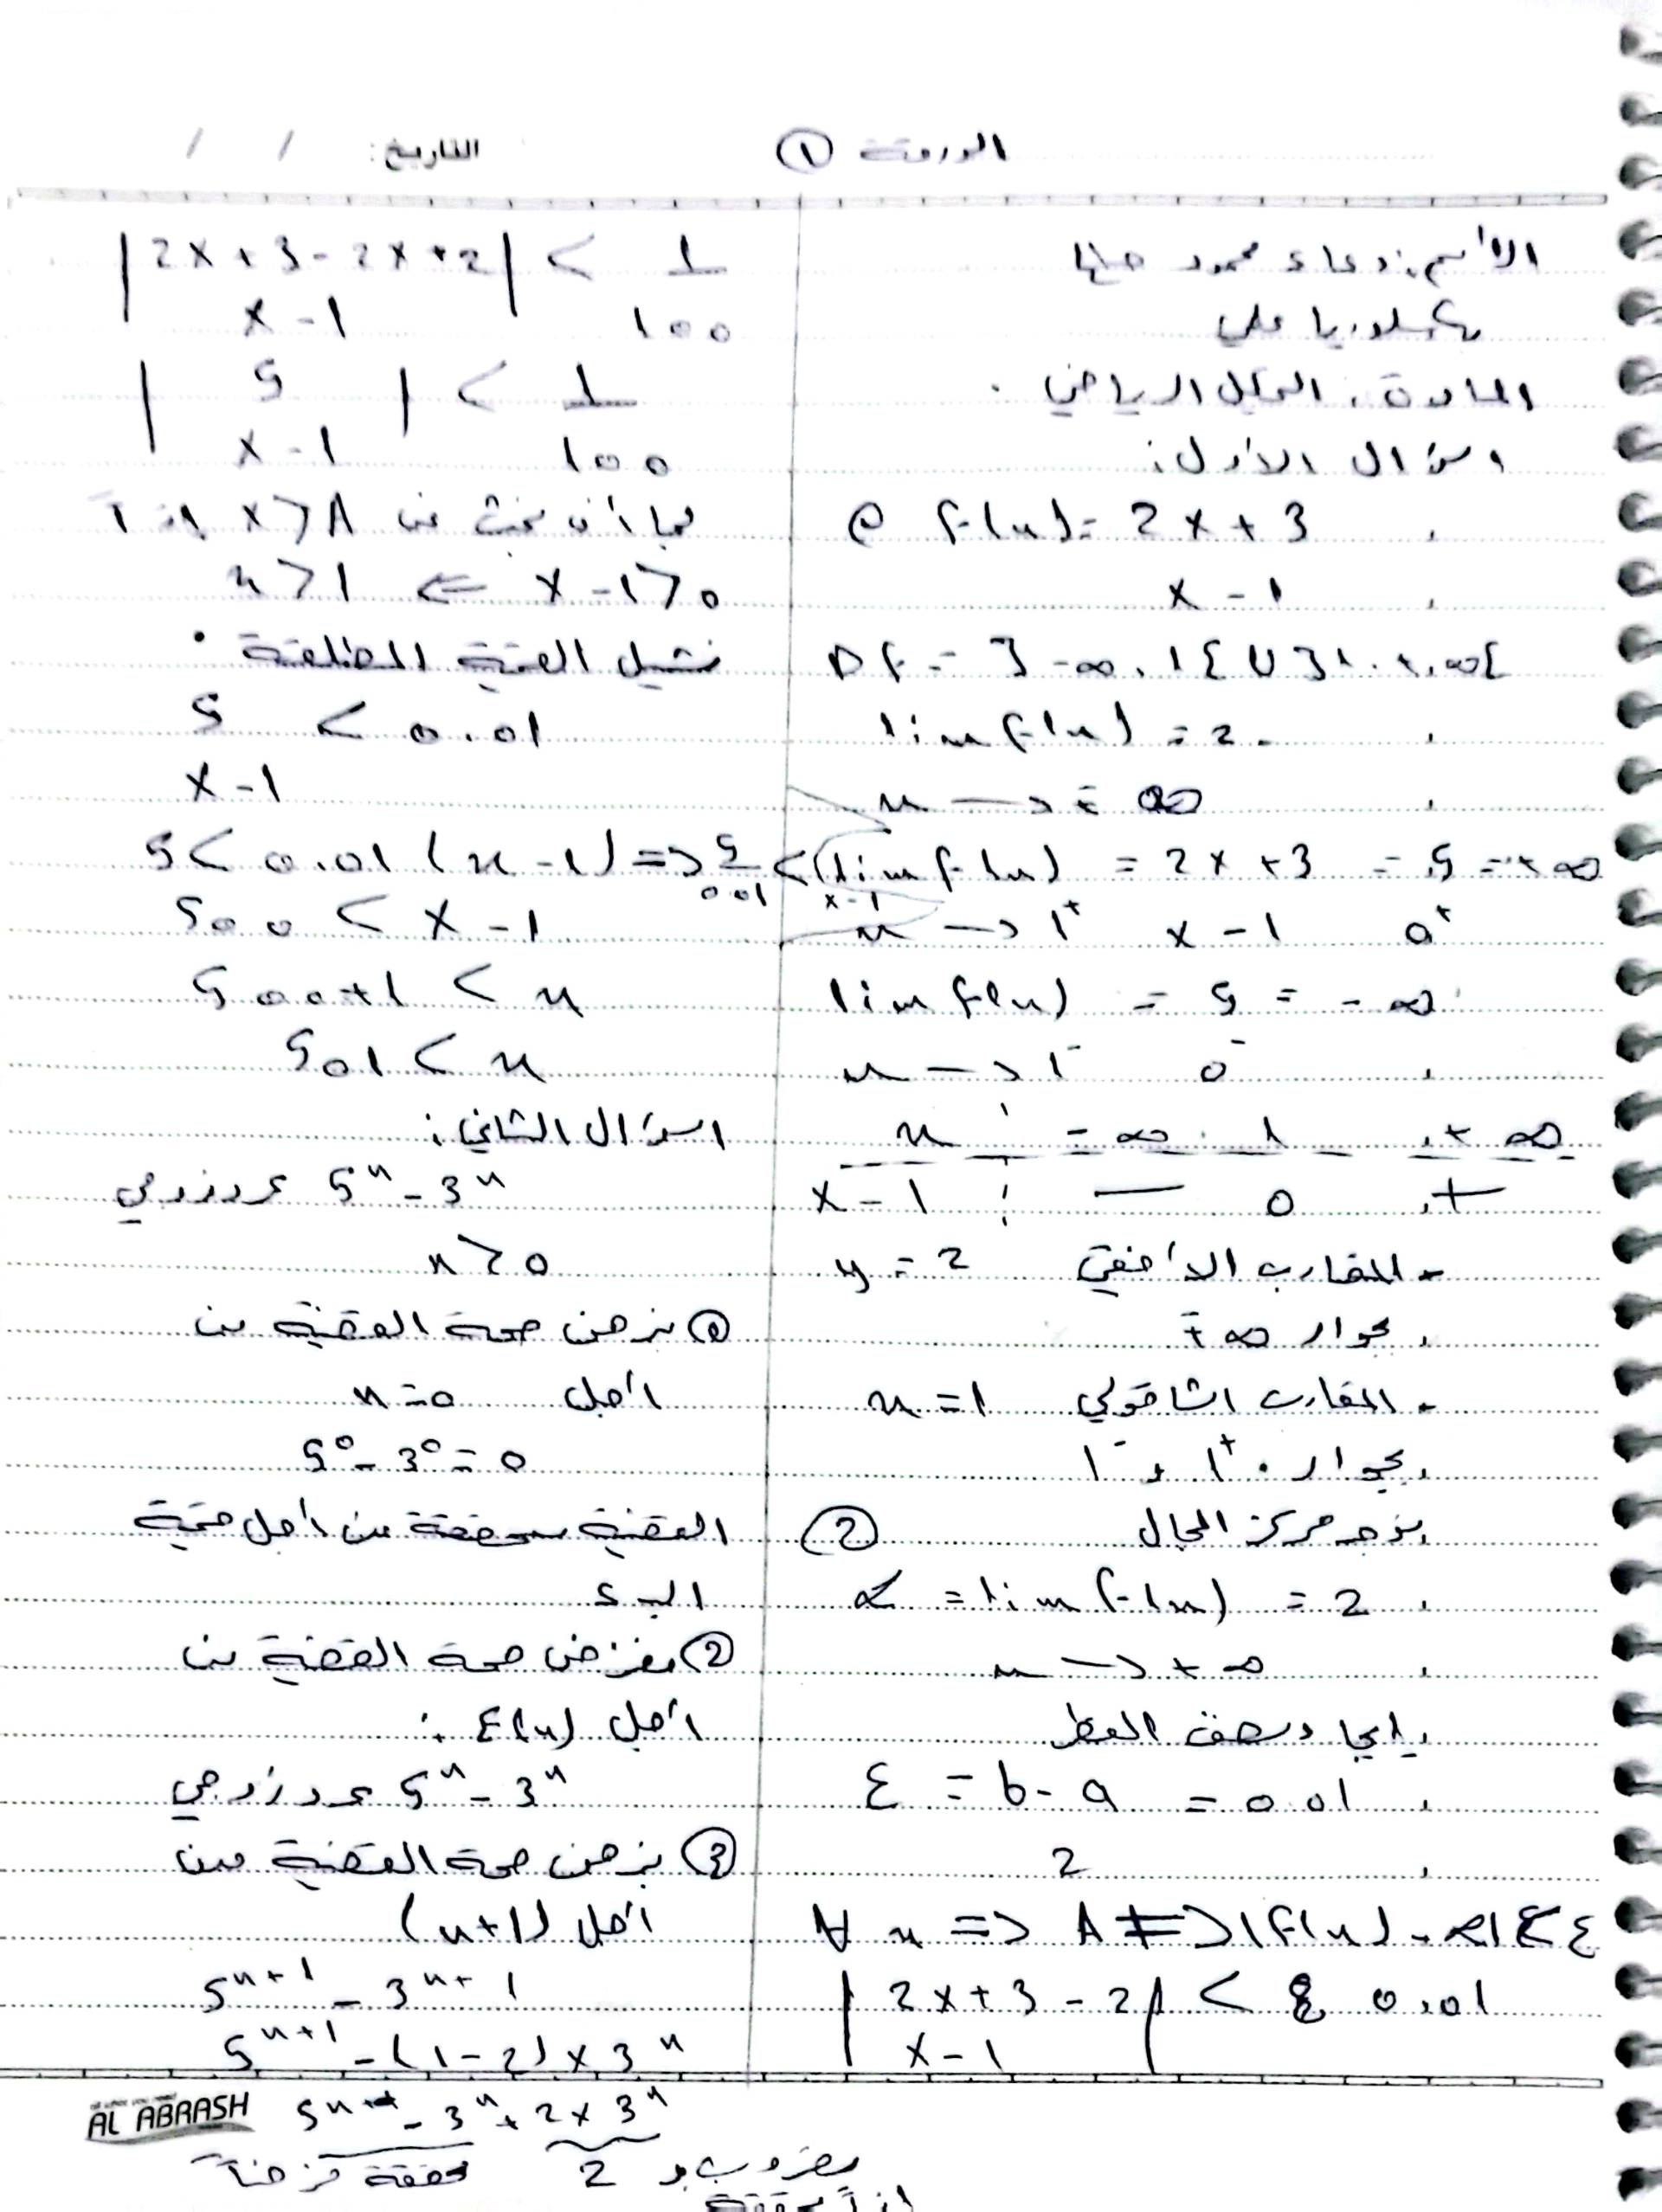 الورقة ①
التاريخ: / /
الأسم: دعاء محمود
بكلوريا علمي
المادة: التحليل الرياضي.
السؤال الأول:
f(x) = 2x + 3
x - 1
Df = ]-∞, 1[ U ]1, +∞[
lim f(x) = 2
x → ∓∞
lim f(x) = 2x + 3 = 5 = +∞
x → 1⁺ x - 1 0⁺
lim f(x) = 5 = -∞
x → 1⁻ 0⁻
x -∞ 1 +∞
x - 1 — 0 +
- المقارب الأفقي y = 2
بجوار ∓∞
- المقارب الشاقولي x = 1
بجوار 1⁺ و 1⁻
② نوجد مركز المجال
α = lim f(x) = 2
x → +∞
إيجاد نصف القطر
ε = b - a = 0.01
2
∀ x => A => |f(x) - α| < ε
| 2x + 3 - 2 | < 0.01
x - 1
| 2x + 3 - 2x + 2 | < 1
x - 1 100
| 5 | < 1
x - 1 100
بما أن نبحث عن x > A إذاً
x > 1 ⇐ x - 1 > 0
نشيل القيمة المطلقة.
5 < 0.01
x - 1
5 < 0.01 (x - 1) => 5 < (x - 1)
0.01
500 < x - 1
500 + 1 < x
501 < x
السؤال الثاني:
5ⁿ - 3ⁿ عدد زوجي
n ≥ 0
① نبرهن صحة القضية من
أجل n = 0
5⁰ - 3⁰ = 0
القضية محققة من أجل قيمة
البدء
② نفترض صحة القضية من
أجل E(n):
5ⁿ - 3ⁿ عدد زوجي
③ نبرهن صحة القضية من
أجل (n+1)
5ⁿ⁺¹ - 3ⁿ⁺¹
5ⁿ⁺¹ - (1 - 2) × 3ⁿ
- 3ⁿ + 2 × 3ⁿ
مضروب بـ 2 محققة فرضاً
AL ABRASH